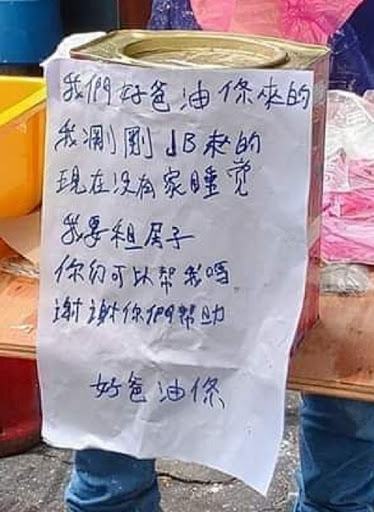 我們好爸油條來的
我剛剛JB來的
現在没有家睡觉
我要租房子
你们可以帮我嗎
谢谢你們帮助
好爸油條